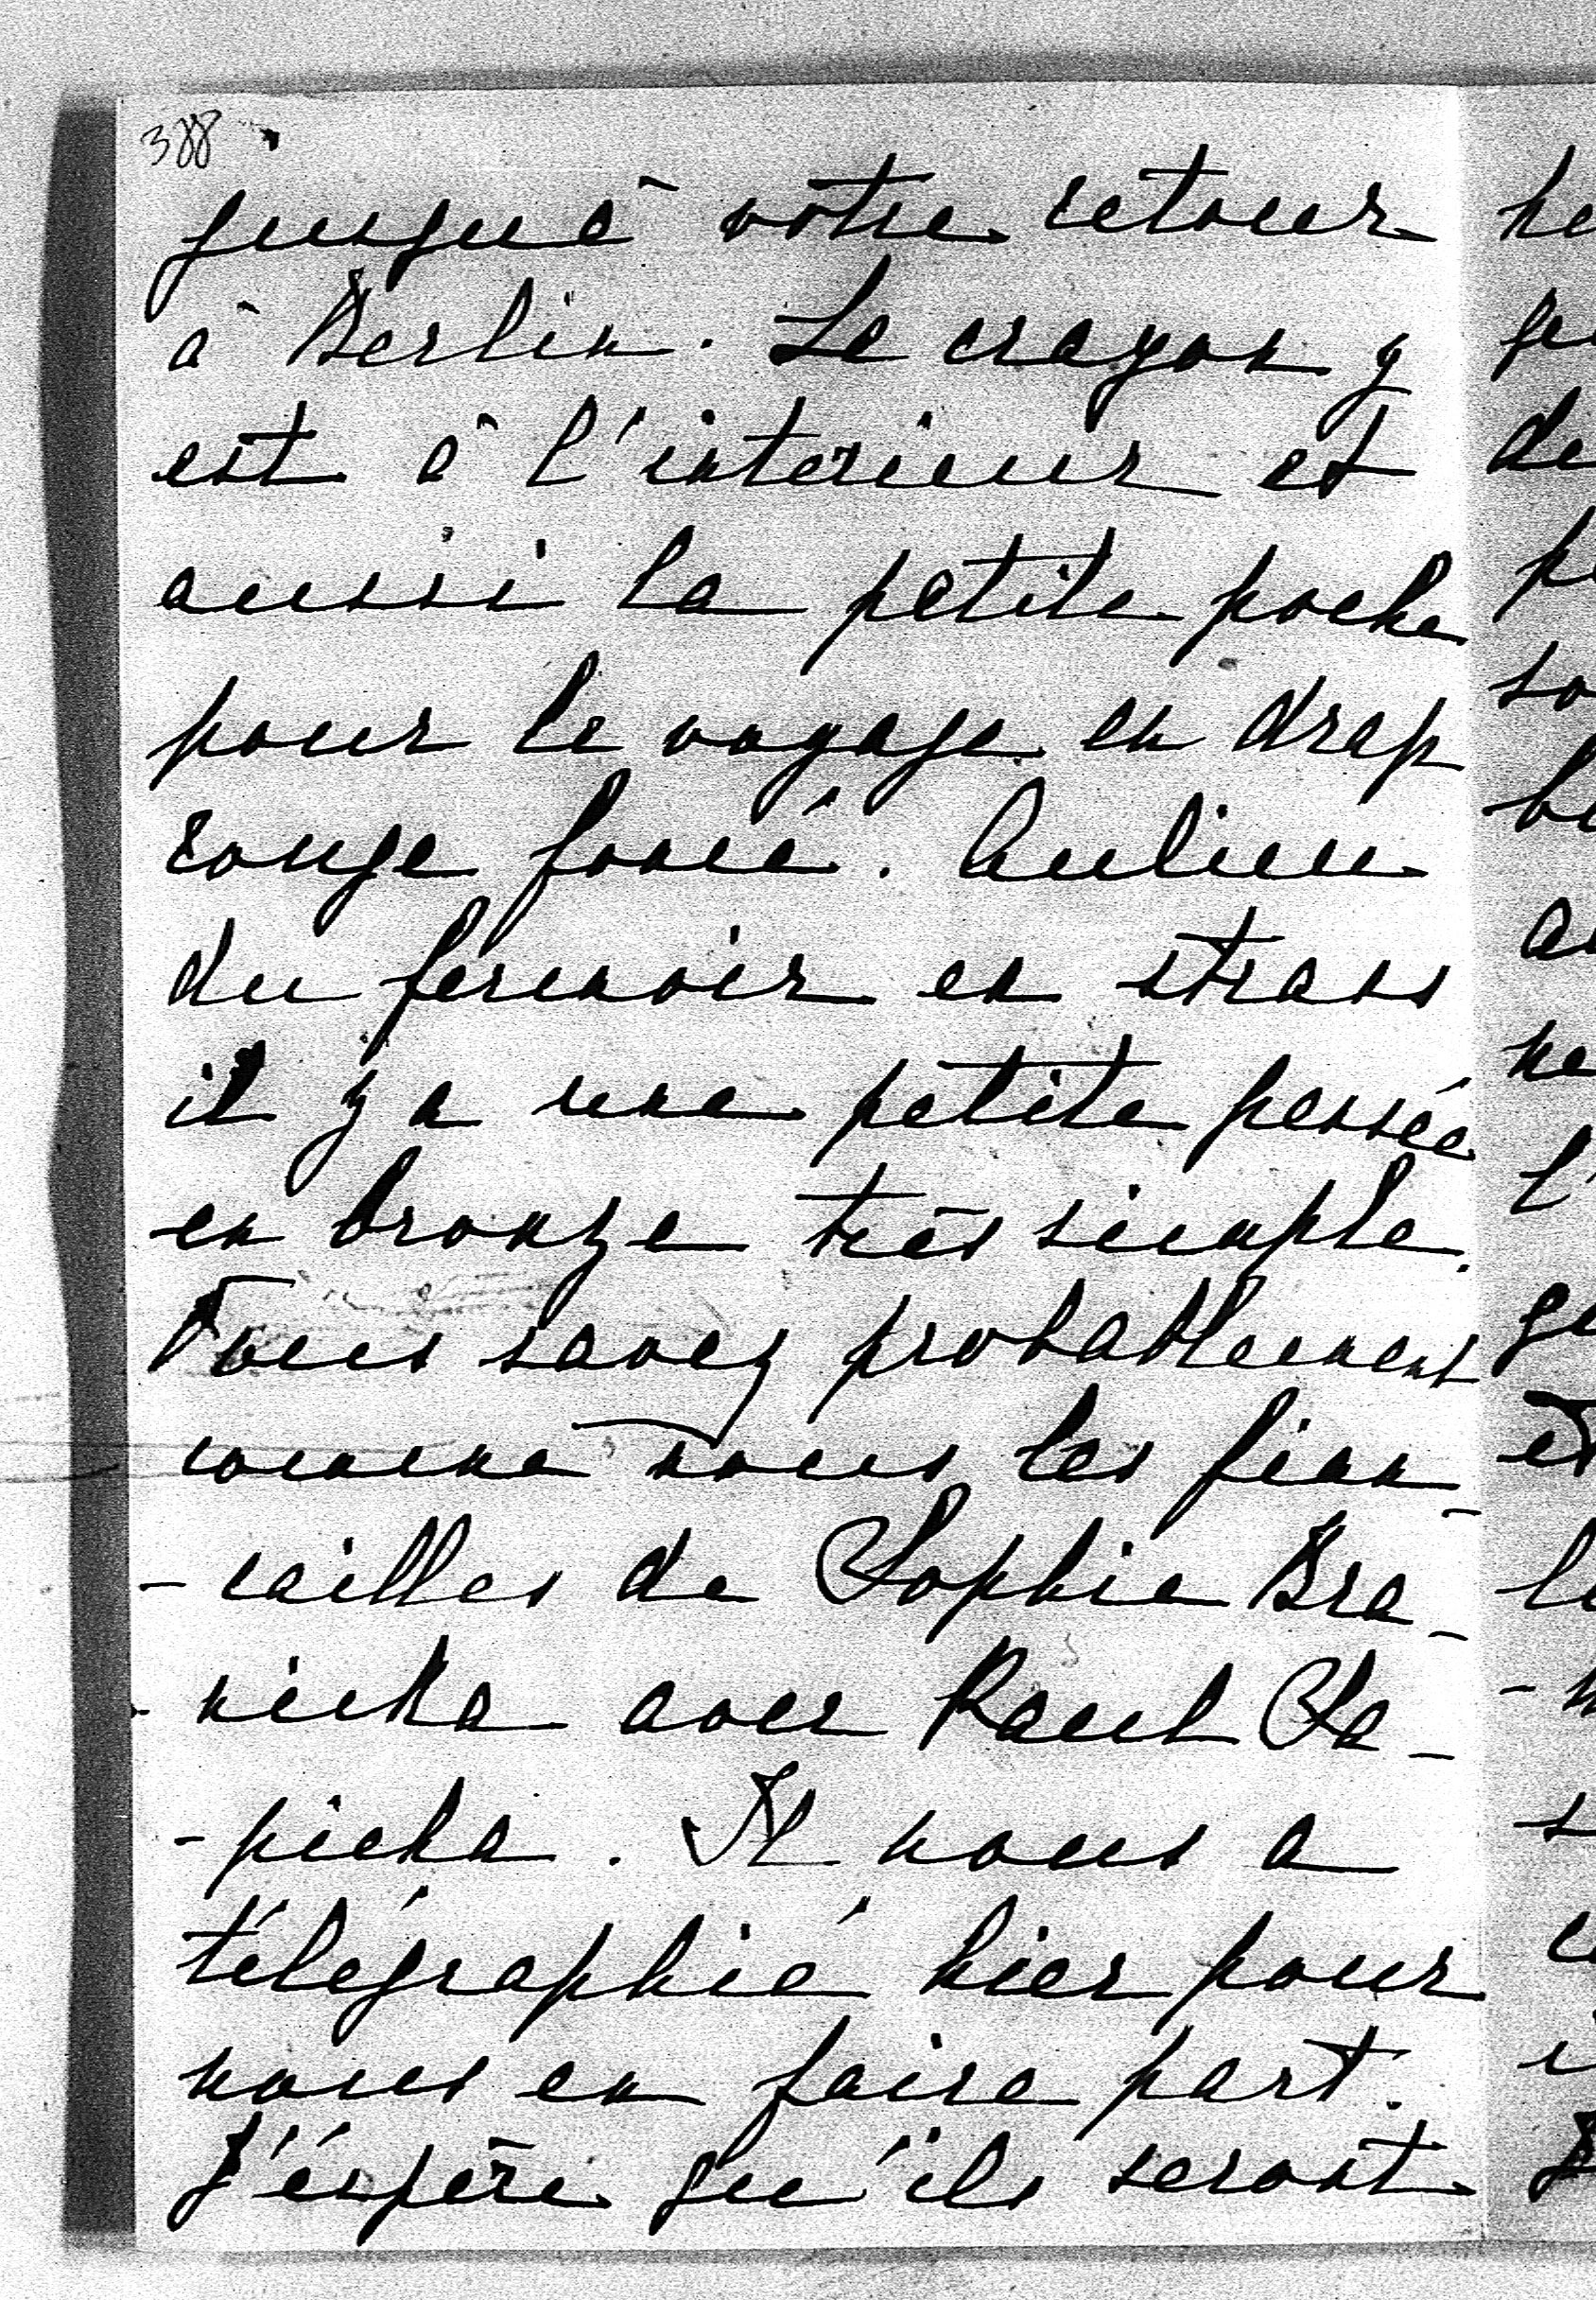 388
jusqu'à votre retour
à Berlin. Le crayon y
est à l'intérieur et
aussi la petite poche
pour le voyage en drap
rouge foncé. Aulieu
du fermoir en strass
il y a une petite pensée
en bronze très simple.
Vous savez probablement
comme nous les fian-
-cailles de Sophie Bra-
-nicka avec Paul Sa-
-pieha. Il nous a
télégraphié hier pour
nous en faire part.
J'éspère qu'ils seront